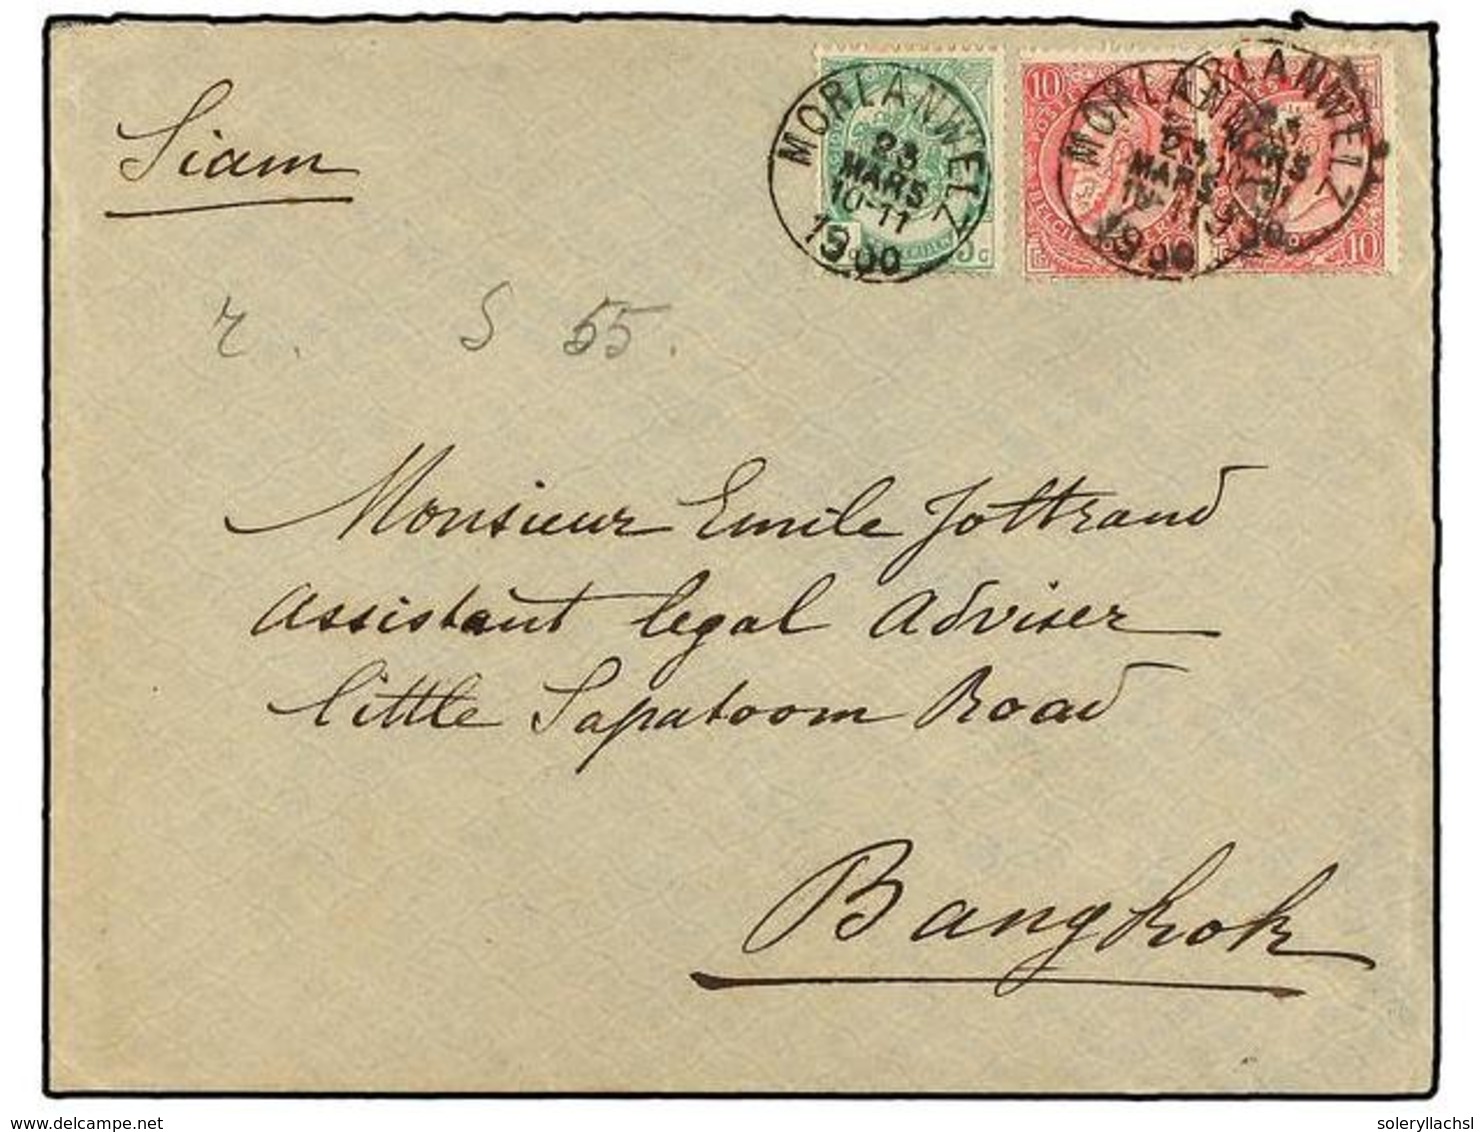 Siam
MORLANWELZ
23
MARS
10-11
1900
5 c
10
MORLANWELZ
23
MARS
10-11
1900
MORLANWELZ
MARS
10
S 55.
Monsieur Emile Jottrand
Assistant legal Adviser
little Sapatoom Road
Bangkok
www.delcampe.net
soleryllachsl